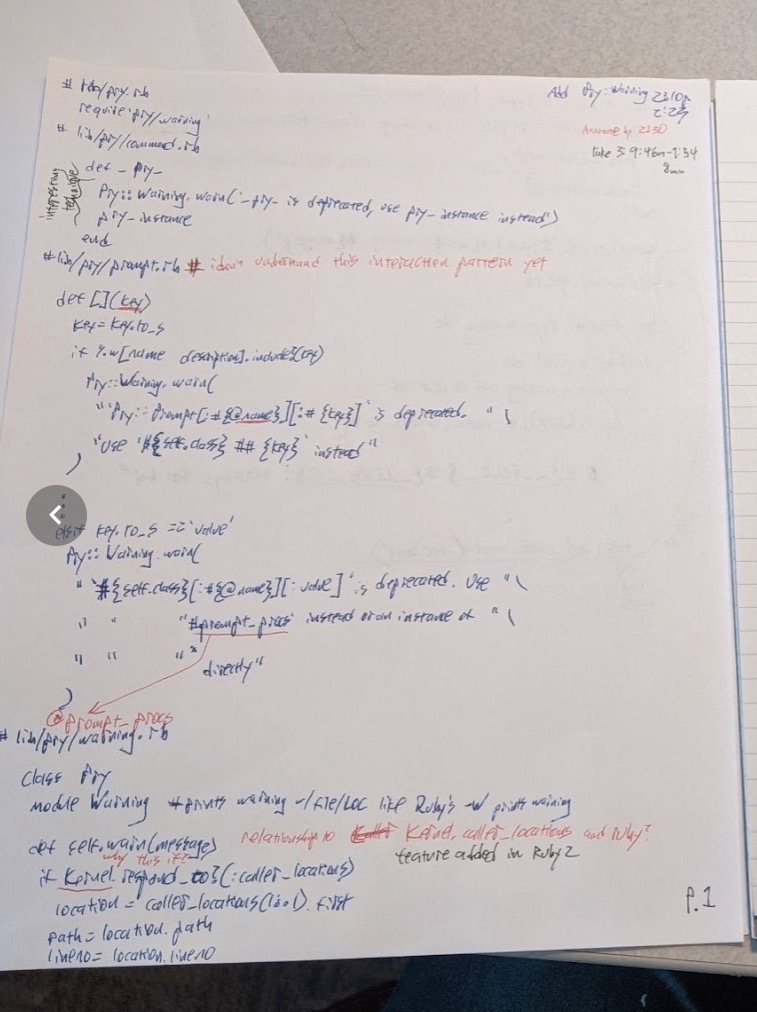 # lib/pry.rb
require 'pry/warning'
# lib/pry/command.rb
def _pry_
Pry::Warning.warn('_pry_ is deprecated, use pry_instance instead')
pry_instance
end
interesting technique
Add Pry::Warning 2310p
2:29
Answer by 2230
take 3: 9:46m-1:34
8min
# lib/pry/prompt.rb # i don't understand this interaction pattern yet
def [](key)
key = key.to_s
if %w[name description].include?(key)
Pry::Warning.warn(
"`Pry::Prompt[:#{@name}][:#{key}]` is deprecated. " \
"Use `#{self.class}##{key}` instead"
)
:
elsif key.to_s == 'value'
Pry::Warning.warn(
"`#{self.class}[:#{@name}][:value]` is deprecated. Use " \
" " "#prompt_procs` instead or an instance of " \
" " " "
directly"
)
@prompt_procs
# lib/pry/warning.rb
class Pry
module Warning # prints warning w/ file/LOC like Ruby's -W prints warning
def self.warn(message) relationship to Kernel.caller_locations and ruby?
why this if? feature added in Ruby 2
if Kernel.respond_to?(:caller_locations)
location = caller_locations(1..1).first
path = location.path
lineno = location.lineno
P.1